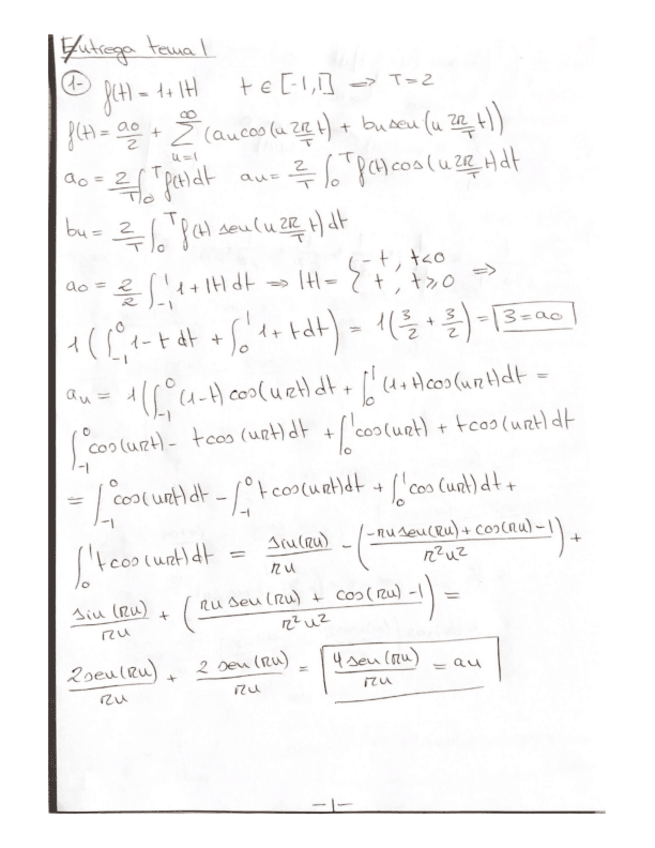 Entrega tema 1
1- f(t) = 1+|t| t ∈ [-1,1] ⇒ T=2
f(t) = a0/2 + ∑_{n=1}^{∞} (an cos(n 2π/T t) + bn sen(n 2π/T t))
a0 = 2/T ∫_0^T f(t)dt an = 2/T ∫_0^T f(t) cos(n 2π/T t)dt
bn = 2/T ∫_0^T f(t) sen(n 2π/T t)dt
a0 = 2/2 ∫_{-1}^1 1+|t| dt ⇒ |t| = { -t, t<0 ; t, t≥0 ⇒
1(∫_{-1}^0 1-t dt + ∫_0^1 1+t dt) = 1(3/2 + 3/2) = 3=a0
an = 1(∫_{-1}^0 (1-t) cos(nπt)dt + ∫_0^1 (1+t)cos(nπt)dt =
∫_{-1}^0 cos(nπt) - t cos(nπt)dt + ∫_0^1 cos(nπt) + t cos(nπt)dt
= ∫_{-1}^0 cos(nπt)dt - ∫_{-1}^0 t cos(nπt)dt + ∫_0^1 cos(nπt)dt +
∫_0^1 t cos(nπt)dt = sin(πn)/πn - ((-πn sen(πn) + cos(πn) -1)/π²n²) +
sin(πn)/πn + ((πn sen(πn) + cos(πn) -1)/π²n²) =
2sen(πn)/πn + 2 sen(πn)/πn = 4 sen(πn)/πn = an
-1-